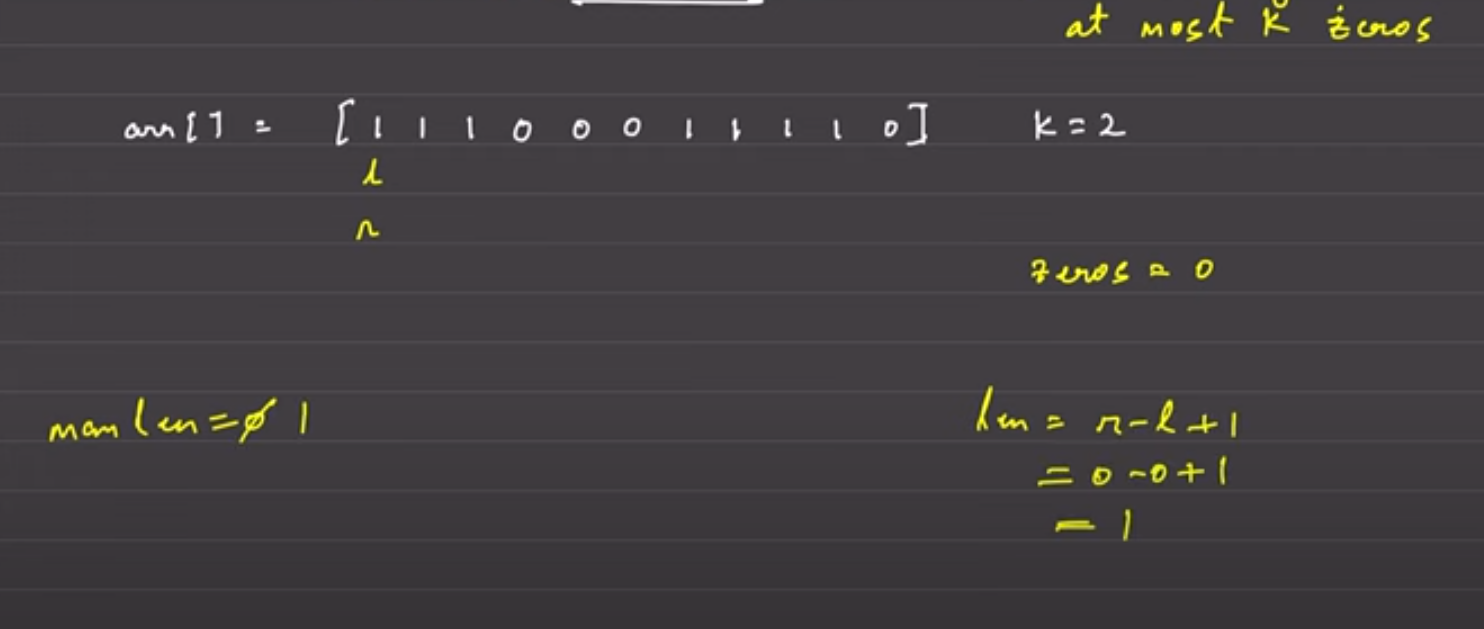 at most K zeros
arr[] = [1 1 1 0 0 0 1 1 1 1 0] K = 2
l
r
zeros = 0
maxlen = 0 1
len = r-l+1
= 0-0+1
= 1